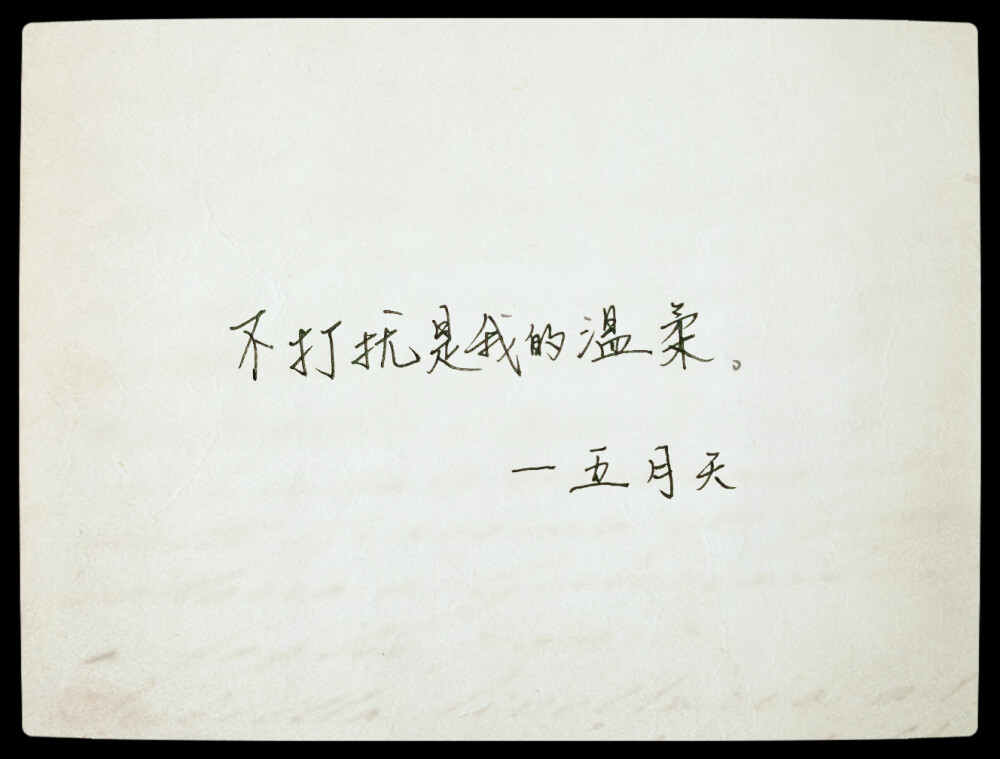 不打扰是我的温柔。
—五月天